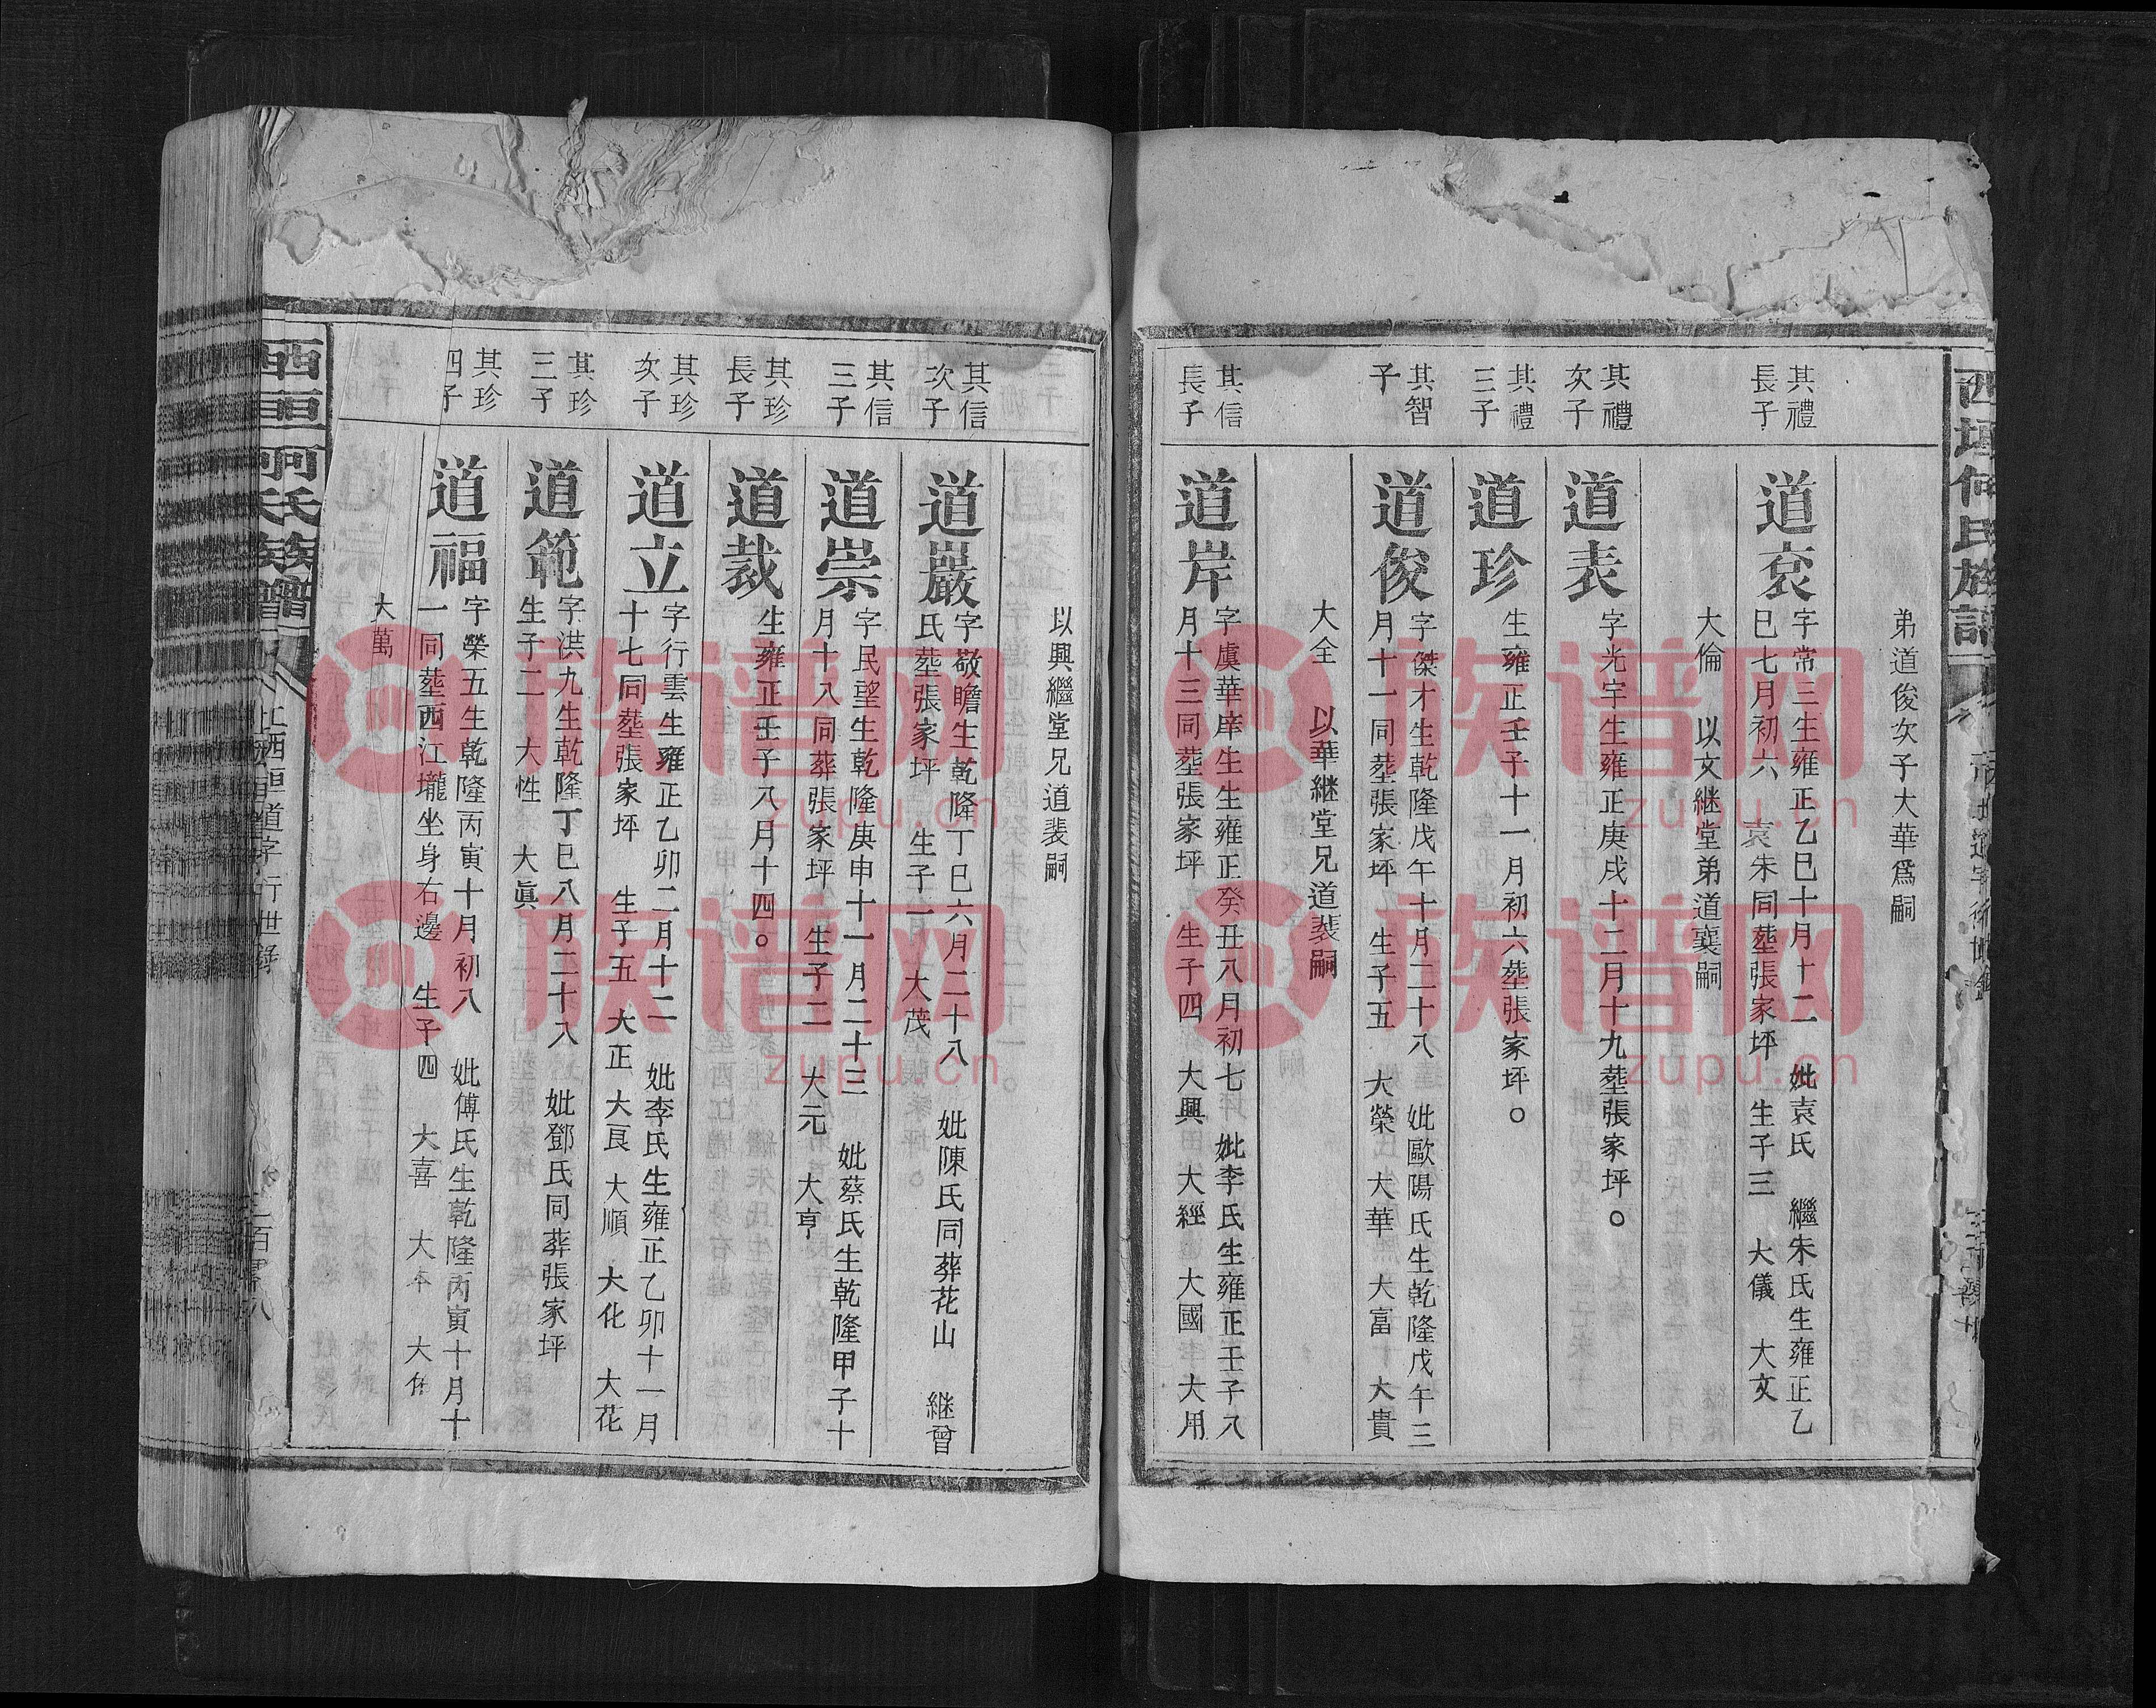 西垣何氏族譜
弟道俊次子大華爲嗣
其禮
長子
道兖
字常三生雍正乙巳十月十二 妣袁氏 繼朱氏生雍正乙
巳七月初六 袁朱同塟張家坪 生子三 大儀 大文
大倫 以文継堂弟道襄嗣
其禮
次子
道表
字光宇生雍正庚戌十二月十九塟張家坪。
其禮
三子
道珍
生雍正壬子十一月初六塟張家坪。
其智
子
道俊
字傑才生乾隆戊午十月二十八 妣歐陽氏生乾隆戊午三
月十一同塟張家坪 生子五 大榮 大華 大富 大貴
大全 以華継堂兄道裴嗣
其信
長子
道岸
字虞華庠生生雍正癸丑八月初七 妣李氏生雍正壬子八
月十三同塟張家坪 生子四 大興 大經 大國 大用
以興繼堂兄道裴嗣
其信
次子
道嚴
字敬瞻生乾隆丁巳六月二十八 妣陳氏同葬花山 継曾
氏塟張家坪 生子一 大茂
其信
三子
道崇
字民望生乾隆庚申十一月二十三 妣蔡氏生乾隆甲子十
月十八同葬張家坪 生子二 大元 大亨
其珍
長子
道裁
生雍正壬子八月十四。
其珍
次子
道立
字行雲生雍正乙卯二月十二 妣李氏生雍正乙卯十一月
十七同塟張家坪 生子五 大正 大良 大順 大化 大花
其珍
三子
道範
字洪九生乾隆丁巳八月二十八 妣鄧氏同葬張家坪
生子二 大性 大眞
其珍
四子
道福
字榮五生乾隆丙寅十月初八 妣傅氏生乾隆丙寅十月十
一同塟西江壠坐身右邊 生子四 大喜 大本 大作
大萬
道字行世錄
族谱网
zupu.cn
族谱网
zupu.cn
族谱网
zupu.cn
族谱网
zupu.cn